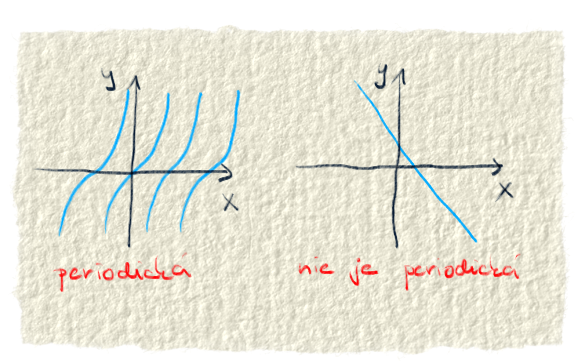 y y
x x
periodická nie je periodická